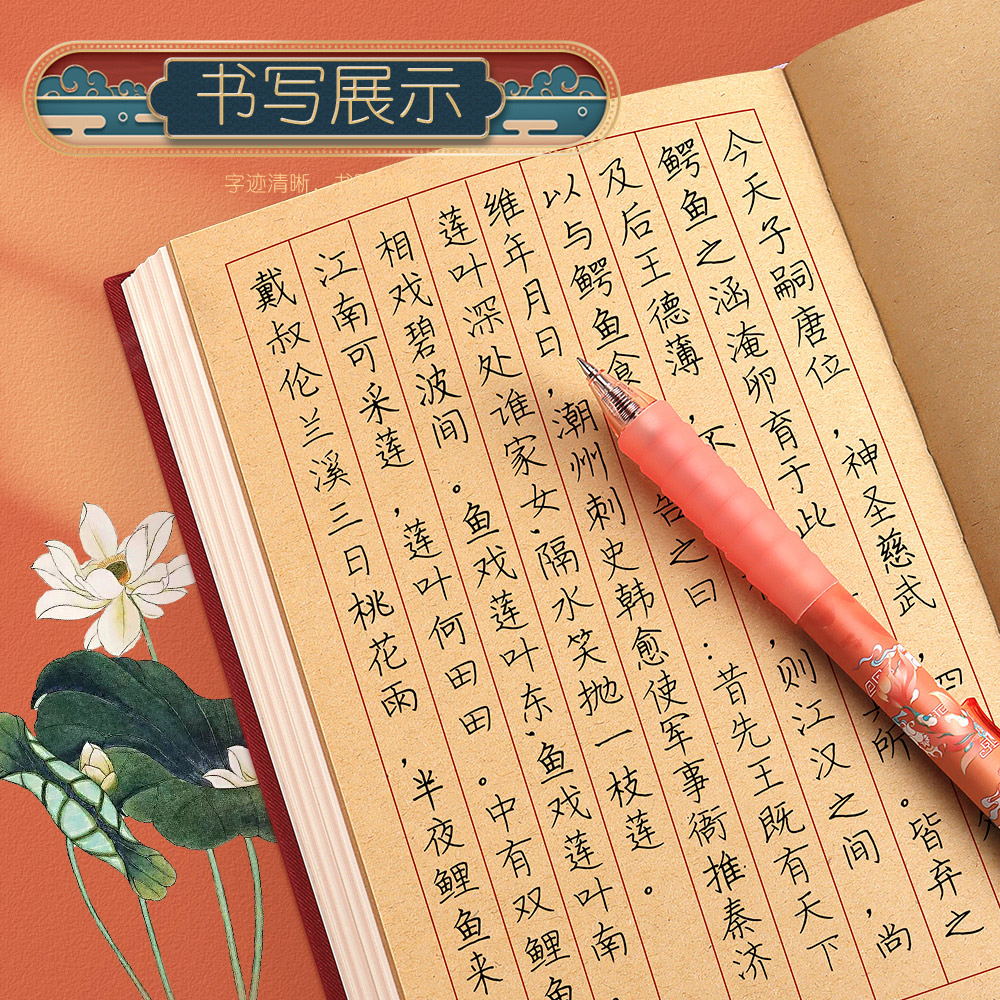 书写展示
字迹清晰,
今天子嗣唐位,神圣慈武,四
鳄鱼之涵淹卵育于此所。皆弃之
及后王德薄,不,则江汉之间,尚
以与鳄鱼食告之曰:昔先王既有天下
维年月日,潮州刺史韩愈使军事衙推秦济
莲叶深处谁家女,隔水笑抛一枝莲。
相戏碧波间。鱼戏莲叶东,鱼戏莲叶南,
江南可采莲,莲叶何田田。中有双鲤鱼
戴叔伦兰溪三日桃花雨,半夜鲤鱼来